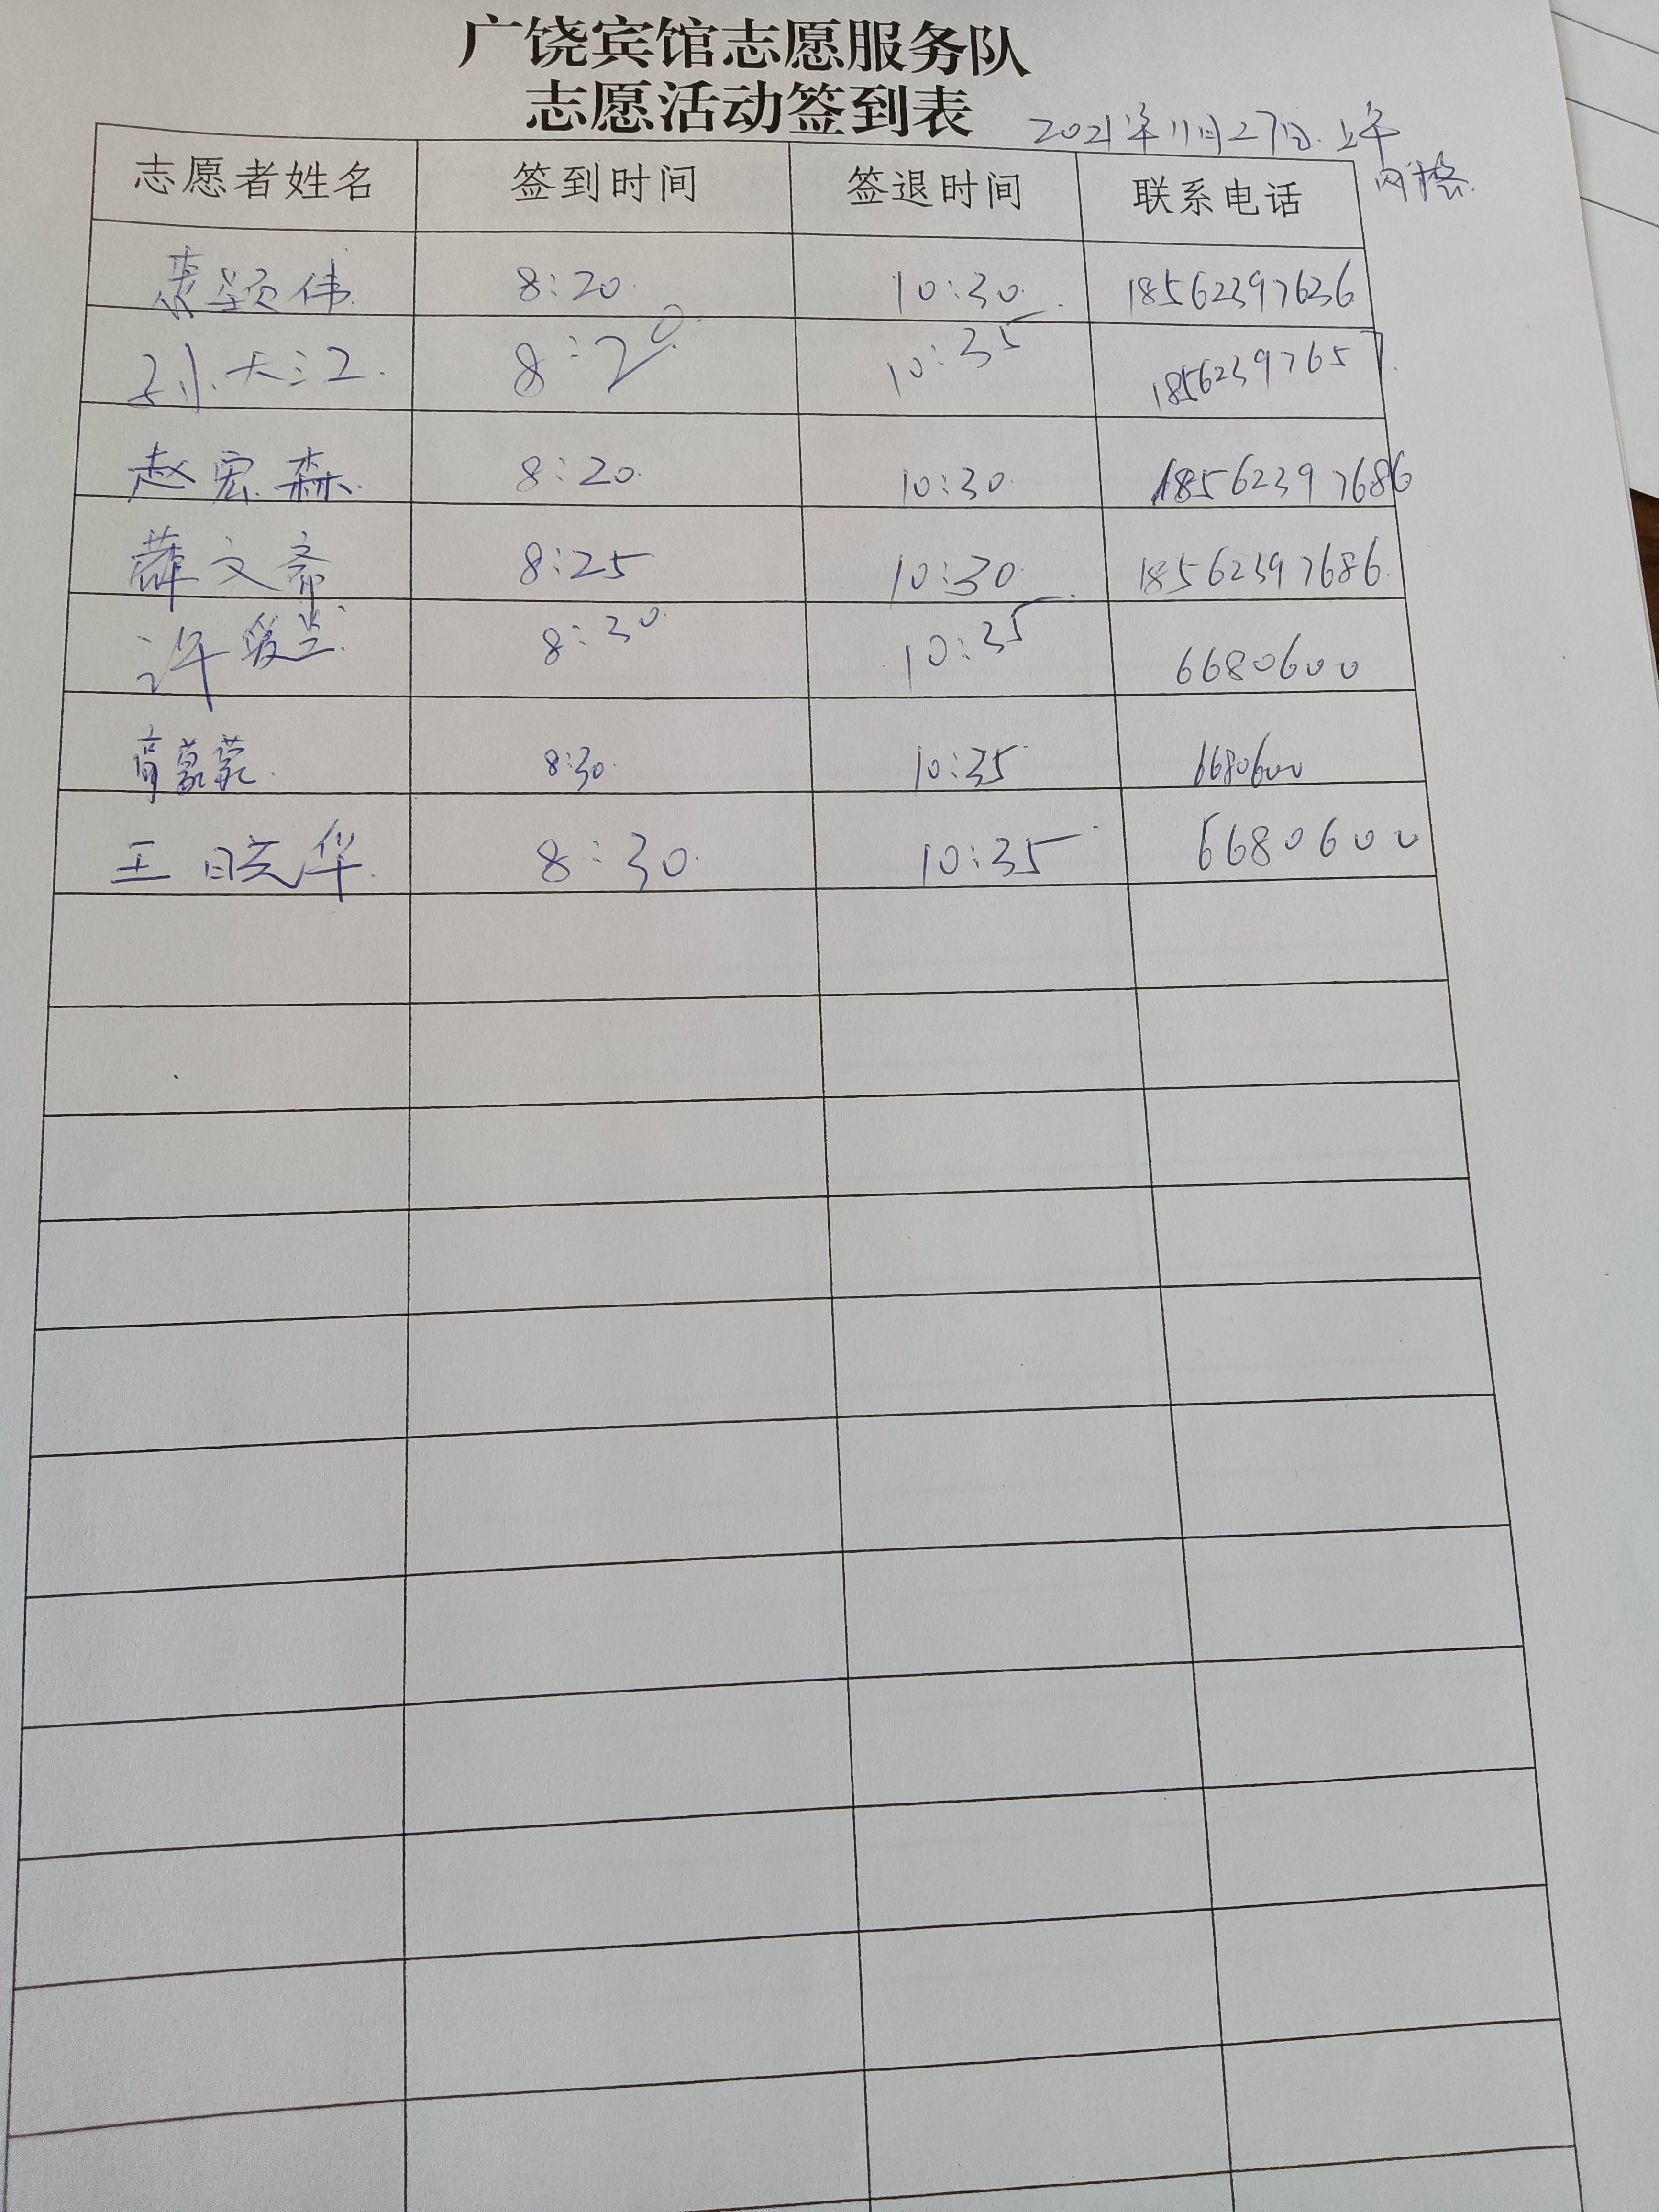 广饶宾馆志愿服务队
志愿活动签到表
2021年11月27日.上午
志愿者姓名 签到时间 签退时间 联系电话
颖伟 8:20 10:30 18562397636
孙大江 8:20 10:35 18562397657
赵宏森 8:20 10:30 18562397686
薛文斋 8:25 10:30 18562397686
许爱兰 8:30 10:35 6680600
蒙蒙 8:30 10:35 6680600
王晓华 8:30 10:35 6680600